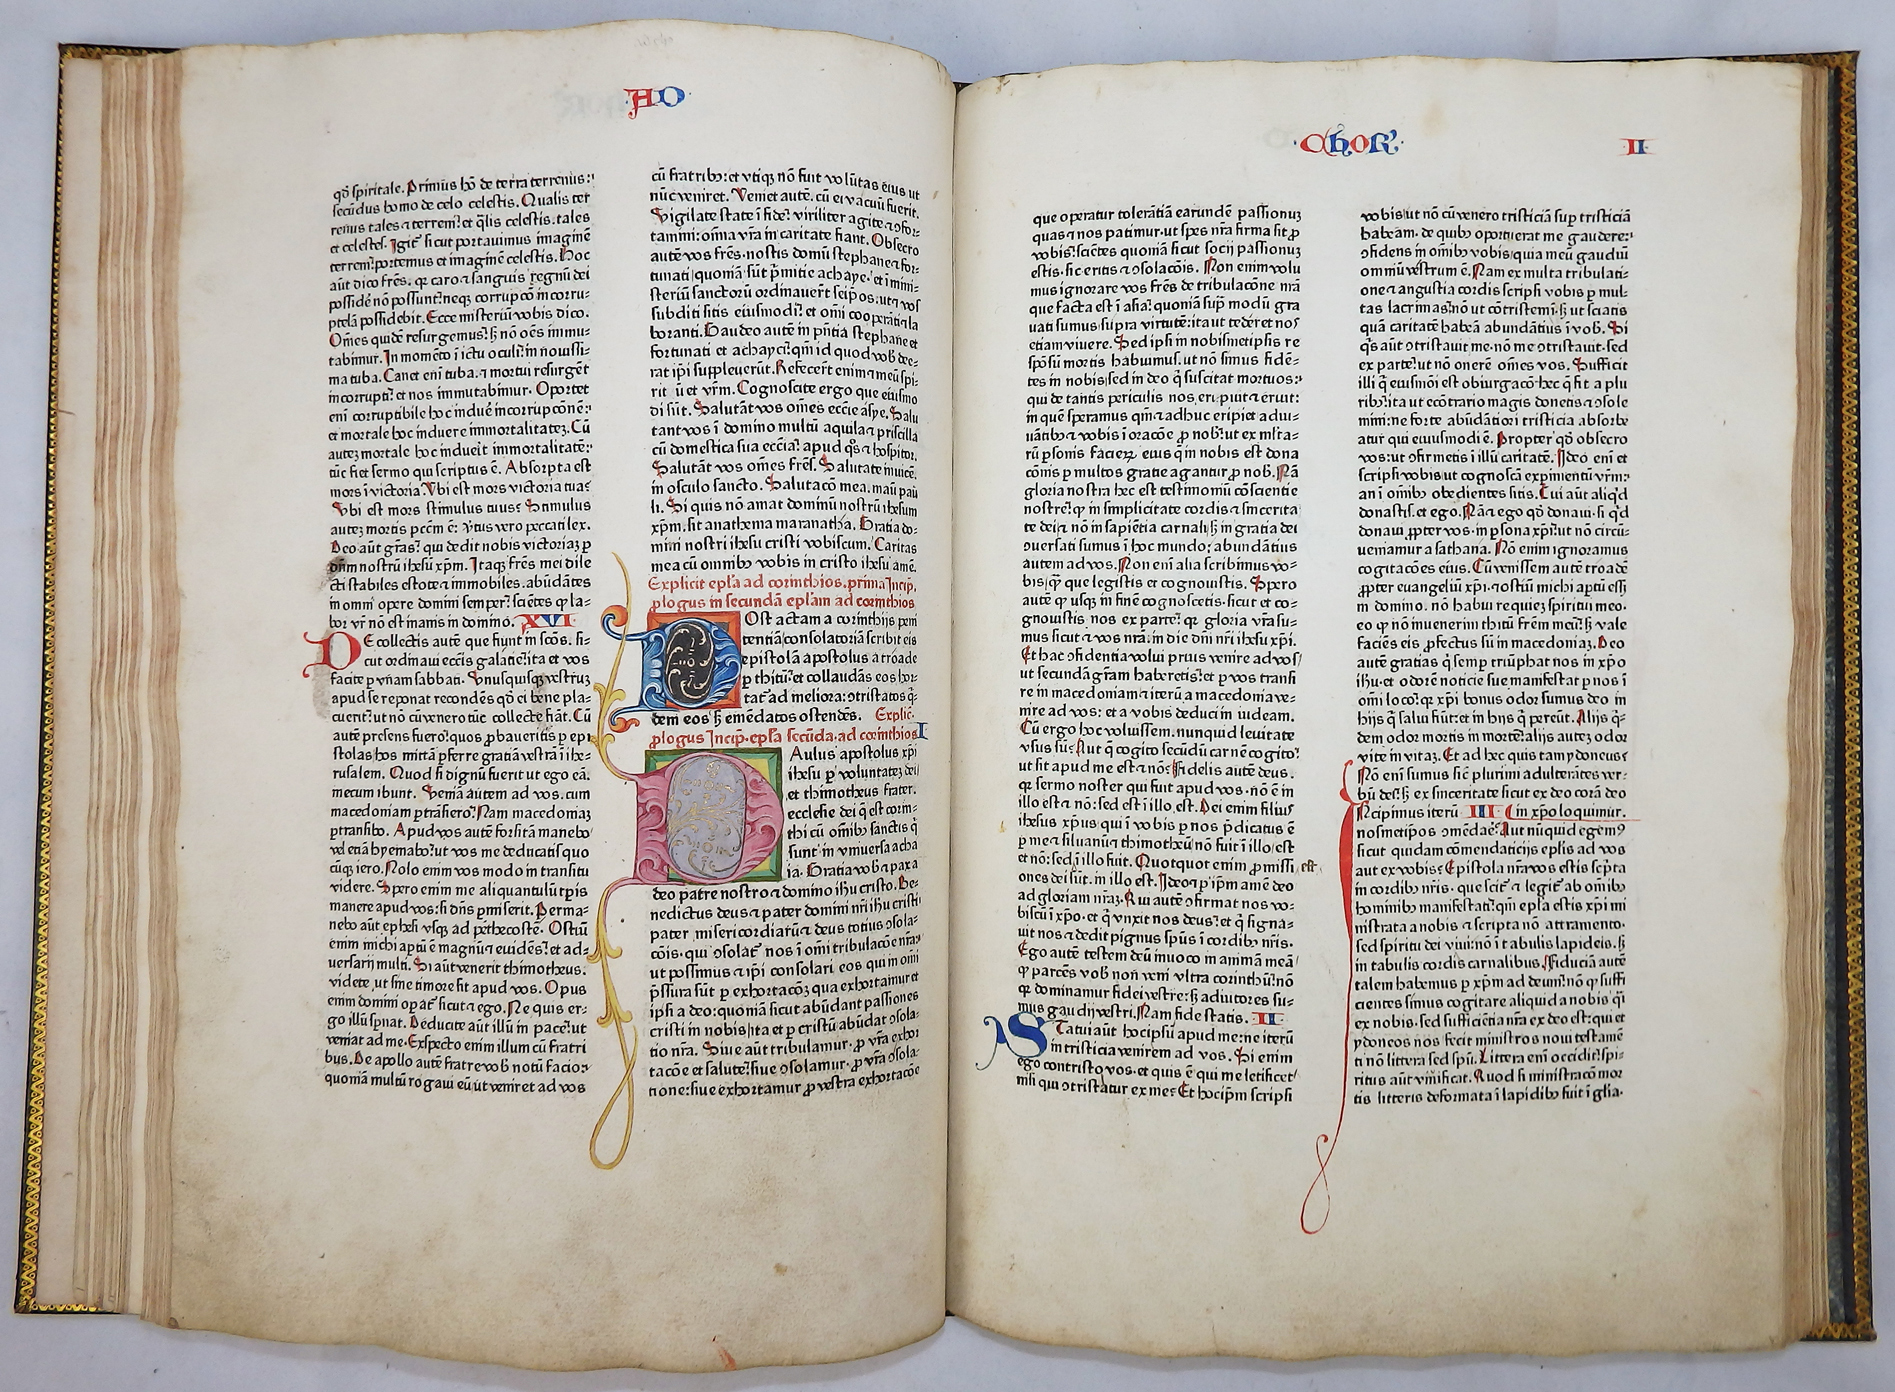 AD
qȝ spiritale. Primus hō de terra terrenus:
secūdus homo de celo celestis. Qualis ter
renus tales ⁊ terreni: et q̄lis celestis. tales
et celestes. Igit̄ sicut portauimus imaginē
terreni: portemus et imaginē celestis. Hoc
aūt dico frēs. qꝛ caro ⁊ sanguis regnū dei
possidē nō possunt: neqȝ corrupcō incorru-
ptelā possidebit. Ecce misteriū vobis dico.
Om̄es quidē resurgemus: sȝ nō oēs immu-
tabimur. In momēto ī ictu oculi: in nouissi-
ma tuba. Canet enī tuba. ⁊ mortui resurgēt
incorrupti: et nos immutabimur. Oportet
enī corruptibile hoc induē incorrupcōnē:
et mortale hoc induere immortalitateȝ. Cū
auteȝ mortale hoc indueīt immortalitatē:
tūc fiet sermo qui scriptus ē. Absorpta est
mors ī victoria. Vbi est mors victoria tua?
Vbi est mors stimulus tuus? Stimulus
auteȝ mortis pccm̄ ē: v̄tus vero peccati lex.
Deo aūt grās: qui dedit nobis victoriaȝ p
dn̄m nostrū ihesū xp̄m. Itaqȝ frēs mei dile
cti stabiles estote ⁊ immobiles. abūdātes
in omni opere domini semper: sciētes qꝙ la-
bor vr̄ nō est inanis in domino. XVI
DE collectis autē que fiunt in scōs. si-
cut ordinaui ecciīs galatie: ita et vos
facite p vnam sabbati. Vnusquisqȝ vestrūȝ
apud se reponat recondēs qȝ ei bene pla-
cuerit: ut nō cū venero tūc collecte fiāt. Cū
autē presens fuero: quos ꝓbaueritis p epi
stolas hos mittā pferre gratiā vestrā ī ihe-
rusalem. Quod si dignū fuerit ut ego eā.
mecum ibunt. Veniā autem ad vos. cum
macedoniam ptrāsiero: Nam macedoniaȝ
ptransibo. Apud vos autē forsitā manebo
vel etiā hyemabo: ut vos me deducatis quo
cūqȝ iero. Nolo enim vos modo in transitu
videre. Spero enim me aliquantulū tp̄is
manere apud vos: si dn̄s pmiserit. Perma-
nebo aūt ephesi vsqȝ ad pēthecostē. Ostiū
enim michi aptū ē magnū ⁊ euidēs: et ad-
uersarij multi. Si aūt venerit thimotheus.
videte, ut sine timore sit apud vos. Opus
enim domini opat̄ sicut ⁊ ego. Ne quis er-
go illū spnat. Deducite aūt illū in pace: ut
veniat ad me. Exspecto enim illum cū fratri
bus. De apollo autē fratre vob̄ notū facio:
quoniā multū rogaui eū ut veniret ad vos
cū fratribȝ: et vtiqȝ nō fuit volūtas eius ut
nūc veniret. Veniet autē. cū ei vacuū fuerit.
Vigilate state ī fide: viriliter agite ⁊ ꝯfor-
tamini: omīa vr̄a in caritate fiant. Obsecro
autē vos frēs. nostis domū stephane ⁊ for-
tunati quoniā sūt pmitie achaye: et ī mini-
steriū sanctorū ordinauerūt seip̄os. ut ⁊ vos
subditi sitis eiusmodi: et omī cooperāti ⁊ la
boranti. Gaudeo autē in pn̄tia stephane et
fortunati et achayci: qm̄ id quod vob̄ dee-
rat ip̄i suppleuerūt. Refecer̄t enim ⁊ meū spi-
ritū et vr̄m. Cognoscite ergo que eiusmo
di sūt. Salutāt vos om̄es ecc̄ie asye. Salu
tant vos ī domino multū aquila ⁊ priscilla
cū domestica sua ecc̄ia: apud q̄s ⁊ hospitor.
Salutāt vos om̄es frēs. Salutate inuicē.
in osculo sancto. Salutacō mea. manū pau
li. Si quis nō amat dominū nostrū ihesum
xp̄m. sit anathema maranatha. Gratia do-
mini nostri ihesu cristi vobiscum. Caritas
mea cū omnibȝ vobis in cristo ihesu amē.
Explicit epl̄a ad corinthios. prima Incip.
plogus in secundā epl̄am ad corinthios
Post actam a corinthijs peni
tentiā consolatoriā scribit eis
epistolā apostolus a tróade
p thitū: et collaudās eos hor-
tat̄ ad meliora: ꝯtristatos q̄-
dem eos sȝ emēdatos ostendēs. Explic.
plogus Incip. epl̄a secūda. ad corinthios I
PAulus apostolus xp̄i
ihesu p voluntateȝ dei
et thimotheus frater.
ecclesie dei q̄ est corin-
thi cū omībȝ sanctis q̄
sunt in vniuersa acha
ia. Gratia vob̄ ⁊ pax a
deo patre nostro ⁊ domino ihū cristo. Be-
nedictus deus ⁊ pater domini nr̄i ihū cristi
pater misericordiarū ⁊ deus totius ꝯsola-
cōis. qui ꝯsolat̄ nos ī omī tribulacōe nr̄a:
ut possimus ⁊ ip̄i consolari eos qui in omī
pssura sūt p exhortacōȝ qua exhortamur et
ipsi a deo: quoniā sicut abūdant passiones
cristi in nobis: ita et p cristū abūdat ꝯsola-
tio nr̄a. Siue aūt tribulamur. ꝓ vr̄a exhor
tacōe et salute: siue ꝯsolamur. ꝓ vr̄a ꝯsola-
tione: siue exhortamur ꝓ vestra exhortacōe
ChoR II
que operatur tolerātiā earundē passionuȝ
quas ⁊ nos patimur. ut spes nr̄a firma sit ꝓ
vobis: sciētes quoniā sicut socij passionuȝ
estis. sic eritis ⁊ ꝯsolacōis. Non enim volu
mus ignorare vos frēs de tribulacōne nr̄a
que facta est ī asia: quoniā sup modū gra
uati sumus supra virtutē: ita ut tederet nos
etiam viuere. Sed ipsi in nobismetipsis re
spōsū mortis habuimus. ut nō simus fidē-
tes in nobis sed in deo q̄ suscitat mortuos:
qui de tantis periculis nos eripuit ⁊ eruit:
in quē speramus qm̄ ⁊ adhuc eripiet adiu-
uātibȝ ⁊ vobis ī oracōe ꝓ nob̄: ut ex ml̄ta-
rū psonis facieȝ eius q̄ in nobis est dona
cōnis p multos gratie agantur ꝓ nob̄. Nā
gloria nostra hec est testimoniū cōscientie
nostre: qꝙ in simplicitate cordis ⁊ sincerita
te dei: ⁊ nō in sapiētia carnali: sȝ in gratia dei
ꝯuersati sumus ī hoc mundo: abundātius
autem ad vos. Non enī alia scribimus vo-
bis: qꝙ que legistis et cognouistis. Spero
autē qꝙ usqȝ in finē cognoscetis. sicut et co-
gnouistis nos ex parte: qꝛ gloria vr̄a su-
mus sicut ⁊ vos nr̄a. in die dn̄i nr̄i ihū xp̄i.
Et hac ꝯfidentia volui prius venire ad vos
ut secundā gram haberetis: et p vos transi
re in macedoniam ⁊ iterū a macedonia ve-
nire ad vos: et a vobis deduci in iudeam.
Cū ergo hoc voluissem. nunquid leuitate
vsus sū? Aut q̄ cogito secūdū carnē cogito:
ut sit apud me est ⁊ nō? Fidelis autē deus.
qꝛ sermo noster qui fuit apud vos. nō ē in
illo est ⁊ nō: sed est ī illo est. Dei enim filius
ihesus xp̄us qui ī vobis p nos pdicatus ē
p me ⁊ siluanū ⁊ thimotheū nō fuit ī illo est
et nō: sed ī illo fuit. Quotquot enim ꝓmissi est
ones dei sūt. in illo est. Ideo ⁊ p ip̄m amē deo
ad gloriam nr̄aȝ. Qui autē ꝯfirmat nos vo-
biscū ī xp̄o. et q̄ vnxit nos deus: et q̄ signa-
uit nos ⁊ dedit pignus spūs ī cordibȝ nr̄is.
Ego autē testem deū inuoco in animā meā
qꝙ parcēs vob̄ non veni vltra corinthū: nō
qꝛ dominamur fidei vestre: sȝ adiutores su-
mus gaudij vestri. Nam fide statis. II
STatui aūt hoc ipsū apud me: ne iterū
in tristicia venirem ad vos. Si enim
ego contristo vos. et quis ē qui me letificet
nisi qui ꝯtristatur ex me? Et hoc ip̄m scripsi
vobis: ut nō cū venero tristiciā sup tristiciā
habeam. de quibȝ oportuerat me gaudere:
ꝯfidens in omībȝ vobis quia meū gaudiū
omniū vestrum ē. Nam ex multa tribulati-
one ⁊ angustia cordis scripsi vobis p mul-
tas lacrimas: nō ut cōtristemī. sȝ ut sciatis
quā caritatē habeā abundātius ī vob̄. Si
q̄s aūt ꝯtristauit me. nō me ꝯtristauit. sed
ex parte: ut nō onerē om̄es vos. Sufficit
illi q̄ eiusmōi est obiurgacō hec q̄ fit a plu
ribȝ: ita ut ecōtrario magis donetis ⁊ ꝯsole
mini: ne forte abūdātiori tristicia absorbe
atur qui eiusmodi ē. Propter qȝ obsecro
vos: ut ꝯfirmetis ī illū caritatē. Ideo enī et
scripsi vobis ut cognoscā expimentū vr̄m:
an ī omībȝ obedientes sitis. Cui aūt aliq̄d
donastis. et ego. Nā ⁊ ego qȝ donaui. si q̄d
donaui ꝓpter vos. in psona xp̄i: ut nō circū-
ueniamur a sathana. Nō enim ignoramus
cogitacōes eius. Cū venissem autē troadē
ꝓpter euangeliū xp̄i. ⁊ ostiū michi aptū essȝ
in domino. nō habui requieȝ spiritui meo.
eo qꝙ nō inuenerim thitū frēm meū: sȝ vale
faciēs eis ꝓfectus sū in macedoniaȝ. Deo
autē gratias q̄ semp triūphat nos in xp̄o
ihū. et odorē noticie sue manifestat p nos ī
omī loco: qꝛ xp̄i bonus odor sumus deo in
hijs q̄ salui fiūt: et in hijs q̄ pereūt. Alijs q̄-
dem odor mortis in mortē: alijs auteȝ odor
vite in vitaȝ. Et ad hec quis tam ydoneus?
Nō enī sumus sicut plurimi adulterātes ver-
bū dei: sȝ ex sinceritate sicut ex deo corā deo
INcipimus iterū III in xp̄o loquimur.
nosmetipos ꝯmēdaē? Aut nūquid egemꝰ
sicut quidam cōmendaticijs eplis ad vos
aut ex vobis? Epistola nr̄a vos estis scpta
in cordibȝ nr̄is. que scit̄ ⁊ legit̄ ab omībȝ
hominibȝ manifestati: qm̄ epl̄a estis xp̄i mi
nistrata a nobis ⁊ scripta nō attramento.
sed spiritu dei viui: nō ī tabulis lapideis. sȝ
in tabulis cordis carnalibus. Fiduciā autē
talem habemus p xp̄m ad deum: nō qꝙ suffi
cientes simus cogitare aliquid a nobis q̄si
ex nobis. sed sufficiētia nr̄a ex deo est: qui et
ydoneos nos fecit ministros noui testamē
ti nō littera sed spū. Littera enī occidit: spi-
ritus aūt viuificat. Quod si ministracō mor
tis litteris deformata ī lapidibȝ fuit ī glīa.